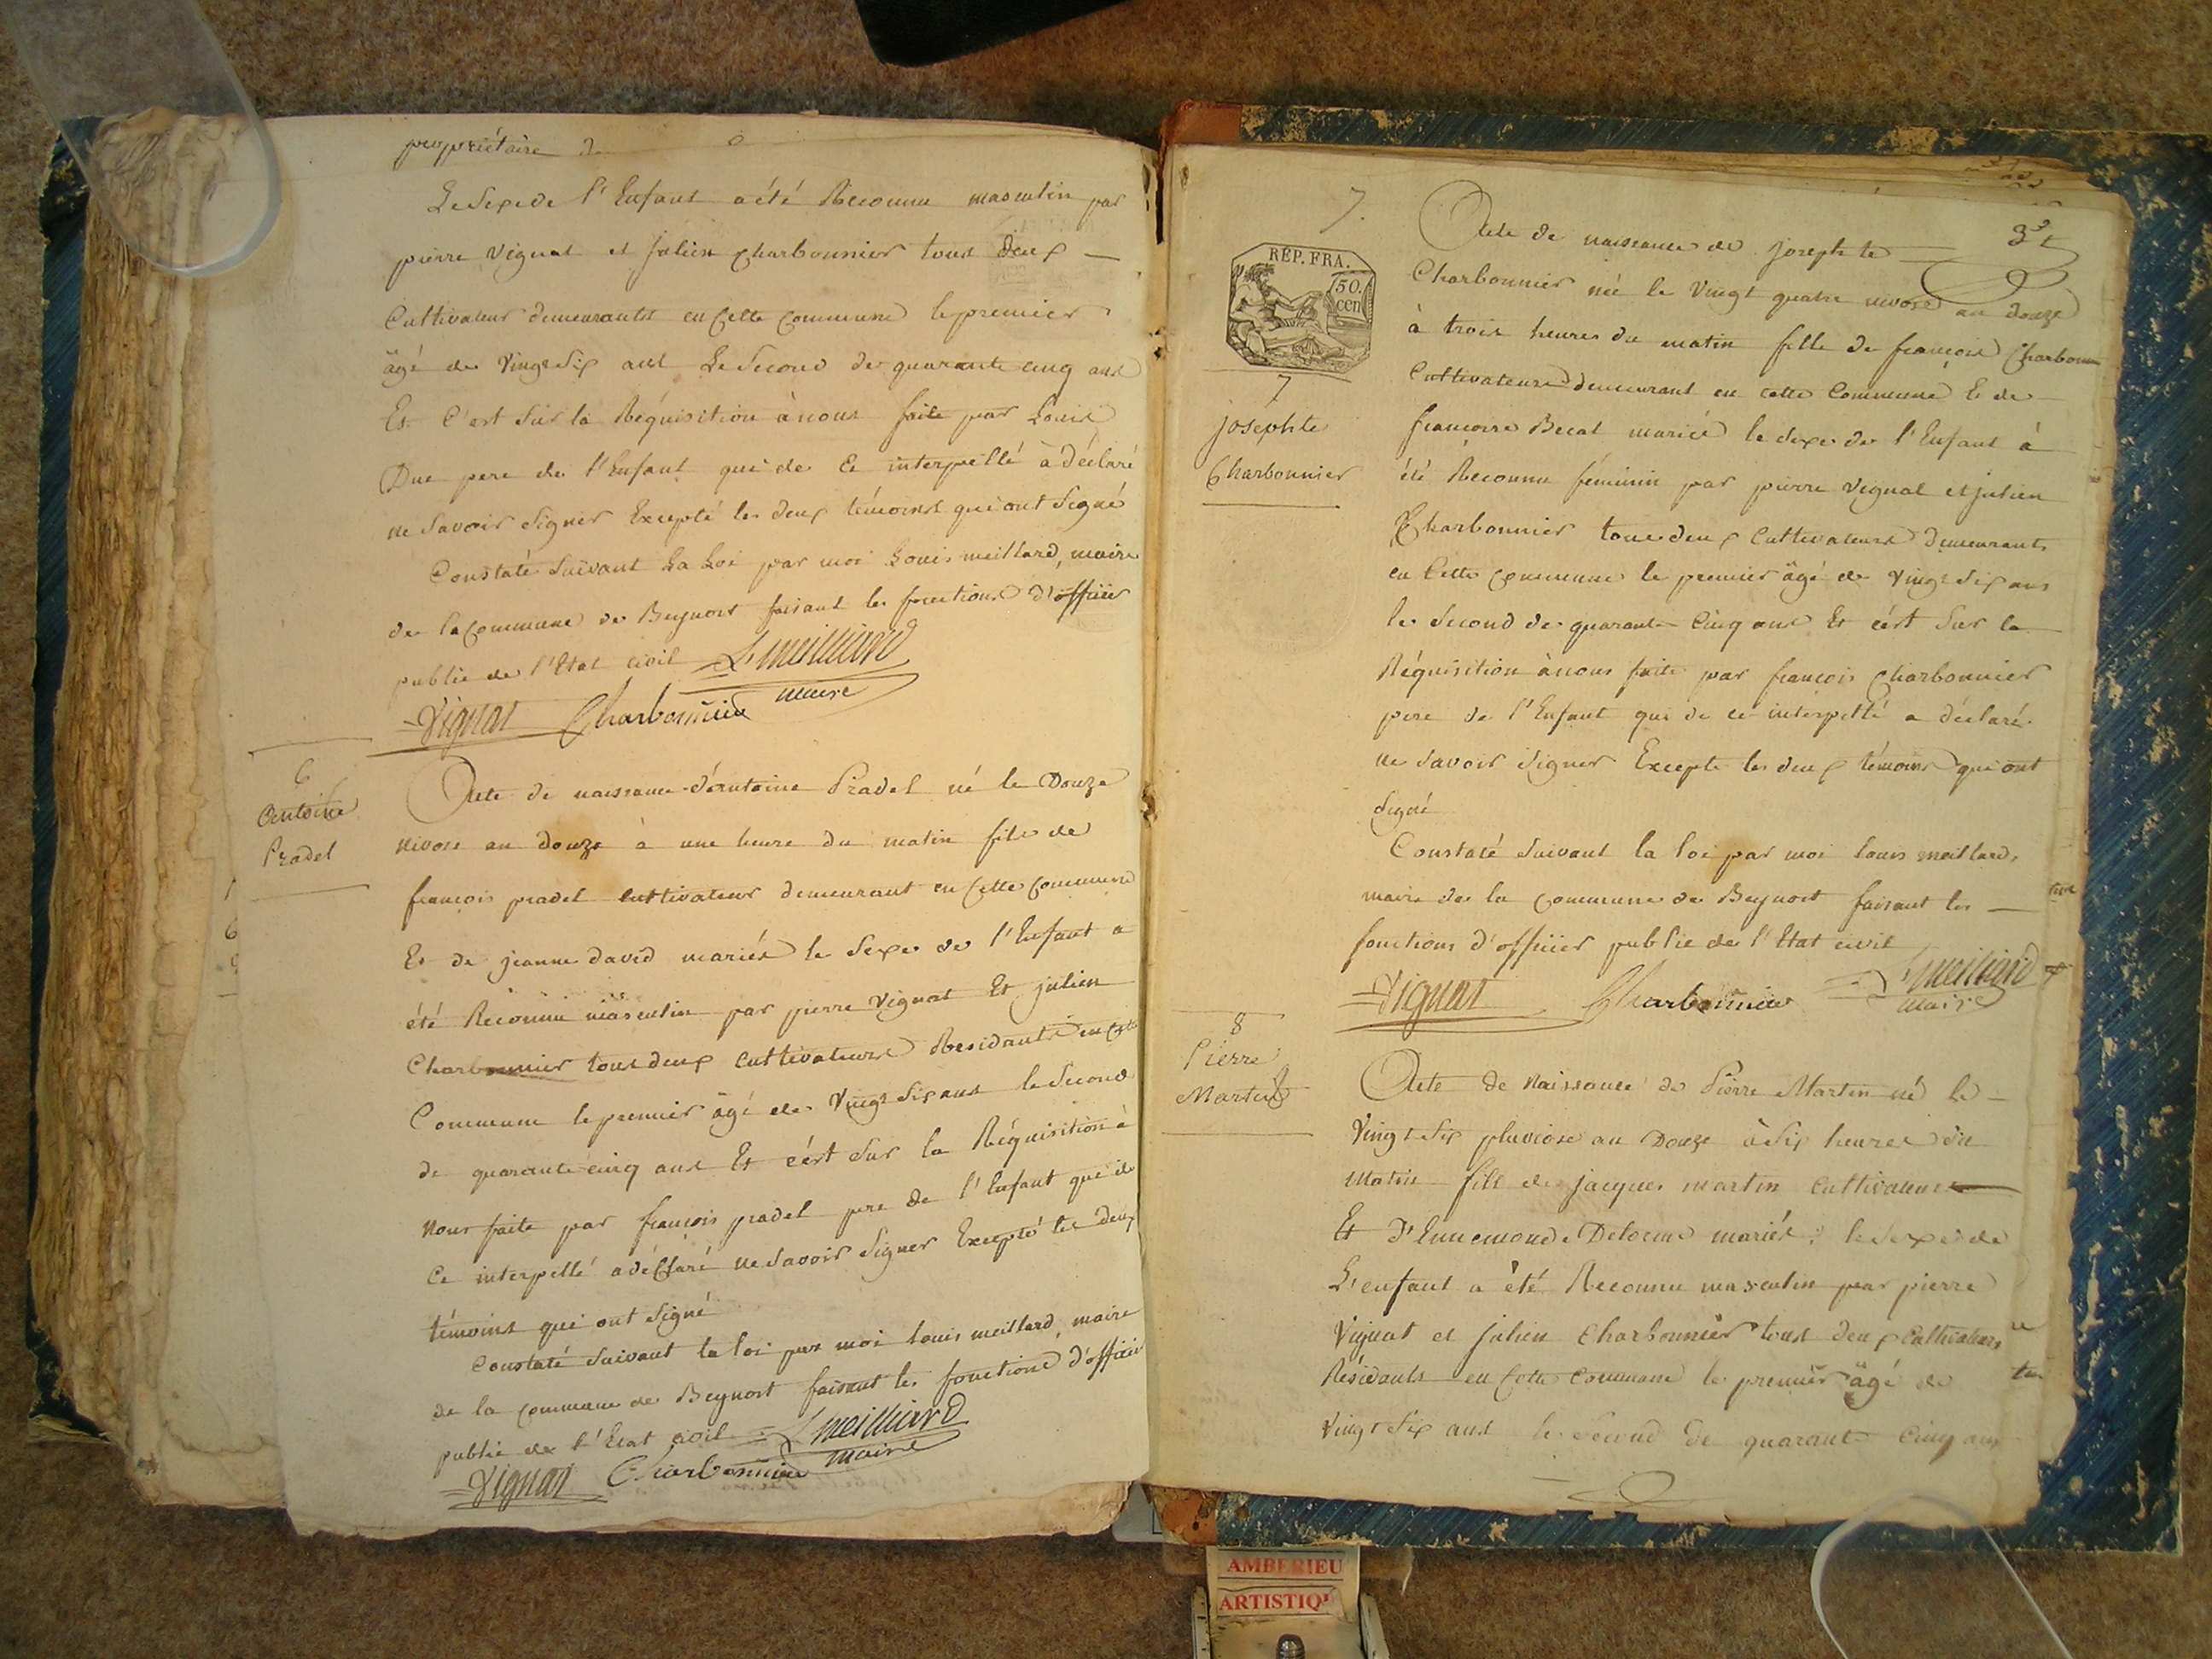 propriétaire de
Le Sexe de l'Enfant a été Reconnu masculin par
pierre Vignat et julien Charbonnier tous deux —
Cultivateur demeurants en Cette Commune le premier
âgé de Vingt Six ans Le Second de quarante cinq ans
Et C'est Sur la Réquisition à nous faite par Louis
Duc pere de l'Enfant qui de Ce interpellé à déclaré
ne Savoir Signer Excepté les deux témoins qui ont Signé
Constaté Suivant La Loi par moi Louis meillard, maire
de la Commune de Beynost faisant les fonctions d'officier
public de l'Etat civil L meilliard
maire
Vignat Charbonnier
6
Antoine
Pradel
Acte de naissance d'Antoine Pradel né le Douze
nivose an douze à une heure du matin fils de
françois pradel Cultivateur demeurant en Cette Commune
Et de jeanne david mariés le Sexe de l'Enfant a
été Reconnu masculin par pierre Vignat Et julien
Charbonnier tous deux Cultivateurs Residants en Cette
Commune le premier âgé de Vingt Six ans le Second
de quarante cinq ans Et c'ést Sur la Réquisition à
Nous faite par françois pradel pere de l'Enfant qui de
Ce interpellé a déclaré ne Savoir Signer Excepté les deux
témoins qui ont Signé
Constaté Suivant la loi par moi Louis meillard, maire
de la Commune de Beynost faisant les fonctions d'officier
public de l'Etat civil L meilliard
maire
Vignat Charbonnier
7.
3
RÉP. FRA.
50.
cen
7
joséphte
Charbonnier
Acte de naissance de josephte
Charbonnier née le Vingt quatre nivose an douze
à trois heures du matin fille de françois Charbonn
Cultivateurs demeurant en cette Commune Et de
françoise Becat mariés le Sexe de l'Enfant à
été Reconnu féminin par pierre Vignat et julien
Charbonnier tous deux Cultivateurs demeurants
en Cette Commune le premier âgé de Vingt Six ans
le Second de quarante Cinq ans Et c'ést Sur la
Réquisition à nous faite par françois Charbonnier
pere de l'Enfant qui de ce interpellé a déclaré
ne Savoir Signer Excepte les deux témoins qui ont
Signé
Constaté Suivant la loi par moi louis meillard,
maire de la Commune de Beynost faisant les —
fonctions d'officier public de l'Etat civil
L meilliard
maire
Vignat Charbonnier
8
Pierre
Martin
Acte de Naissance de Pierre Martin né le
Vingt Six pluviose an Douze à Six heures du
Matin fils de jacques martin Cultivateur
Et D'Ennemonde Delorme mariés : le Sexe de
L'enfant a été Reconnu masculin par pierre
Vignat et julien Charbonnier tous deux Cultivateurs
Résidants en Cette Commune le premier âgé de
Vingt Six ans le Second de quarante Cinq ans
AMBERIEU
ARTISTIQU